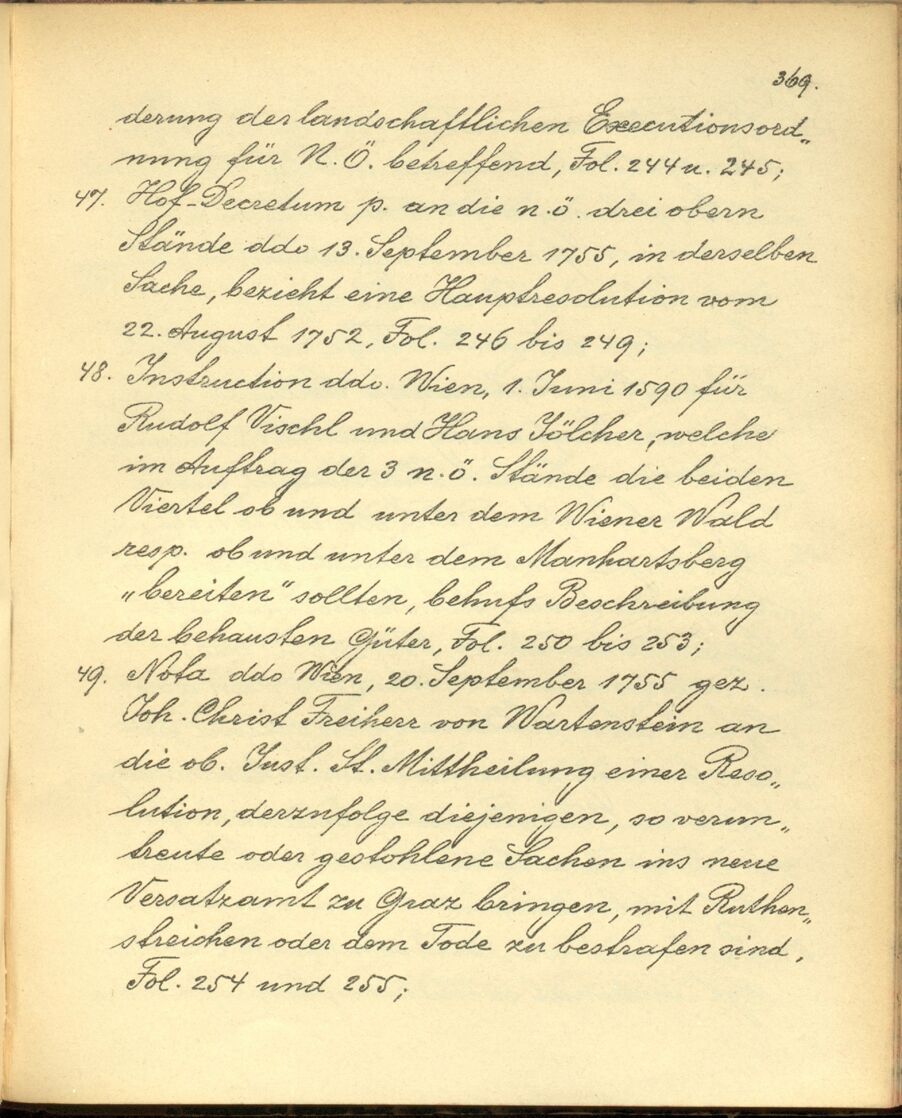 369.
derung der landschaftlichen Executionsord„
nung für N. Ö. betreffend, Fol. 244 u. 245;
47. Hof-Decretum p. an die n. ö. drei obern
Stände ddo 13. September 1755, in derselben
Sache, bezieht eine Hauptresolution vom
22. August 1752, Fol. 246 bis 249;
48. Instruction ddo. Wien, 1. Juni 1590 für
Rudolf Vischl und Hans Jölcher, welche
im Auftrag der 3 n. ö. Stände die beiden
Viertel ob und unter dem Wiener Wald
resp. ob und unter dem Manhartsberg
„bereiten“ sollten, behufs Beschreibung
der behausten Güter, Fol. 250 bis 253;
49. Nota ddo Wien, 20. September 1755 gez.
Joh. Christ Freiherr von Wartenstein an
die ob. Just. St. Mittheilung einer Reso„
lution, derzufolge diejenigen, so verun„
treute oder gestohlene Sachen ins neue
Versatzamt zu Graz bringen, mit Ruthen„
streichen oder dem Tode zu bestrafen sind,
Fol. 254 und 255;